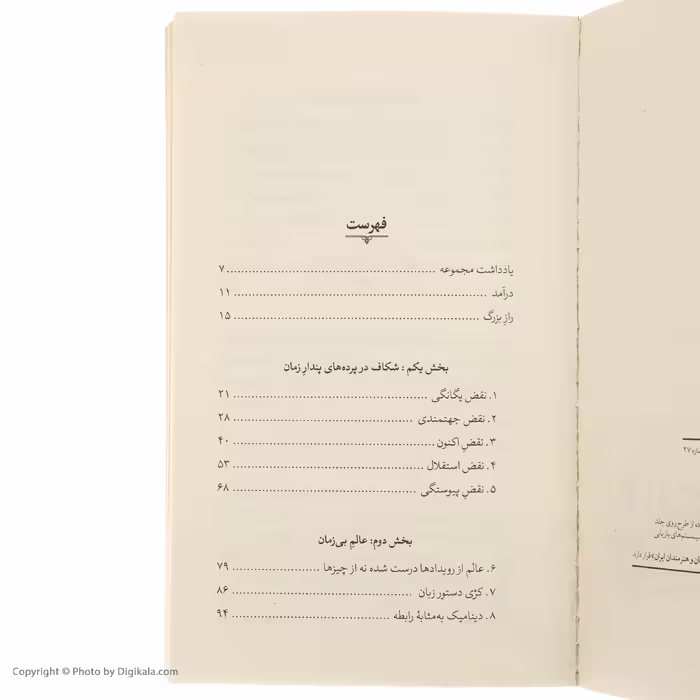 فهرست
یادداشت مجموعه ........ ۷
درآمد ........ ۱۱
راز بزرگ ........ ۱۵
بخش یکم : شکاف در پرده‌های پندار زمان
۱. نقض یگانگی ........ ۲۱
۲. نقض جهتمندی ........ ۲۸
۳. نقض اکنون ........ ۴۰
۴. نقض استقلال ........ ۵۳
۵. نقض پیوستگی ........ ۶۸
بخش دوم: عالم بی‌زمان
۶. عالم از رویدادها درست شده نه از چیزها ........ ۷۹
۷. کژی دستور زبان ........ ۸۶
۸. دینامیک به‌مثابهٔ رابطه ........ ۹۴
۲۷
از طرح روی جلد
سیستم‌های بازیابی
و هنرمندان ایران» قرار دارد.
Copyright © Photo by Digikala.com